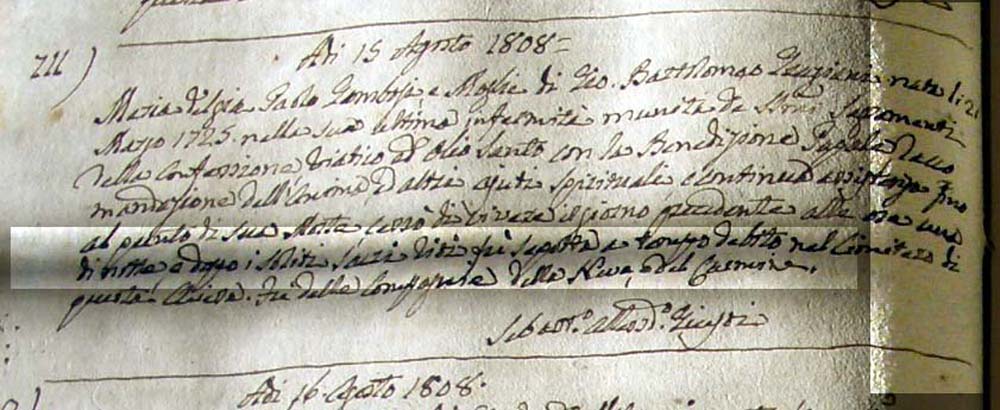 711)
Adi 15 Agosto 1808=
Maria del qm. Paolo e Moglie di Gio. Bartolomeo nata li 21
Marzo 1725. nella sua ultima infermità munita de SSmi Sagramenti
della Confessione Viatico ed Olio Santo con la Benedizione Papale Racco
mandazione dell'Anima, ed altri ajuti spirituali e continua assistenza fino
al punto di sua Morte cessò di vivere il giorno precedente alle ore una
di notte, e doppo i soliti sacri riti fu sepolta a tempo debito nel Cimitero di
questa Chiesa. Fu delle Compagnie della Neve, e del Carmine.
Adi 16. Agosto 1808.